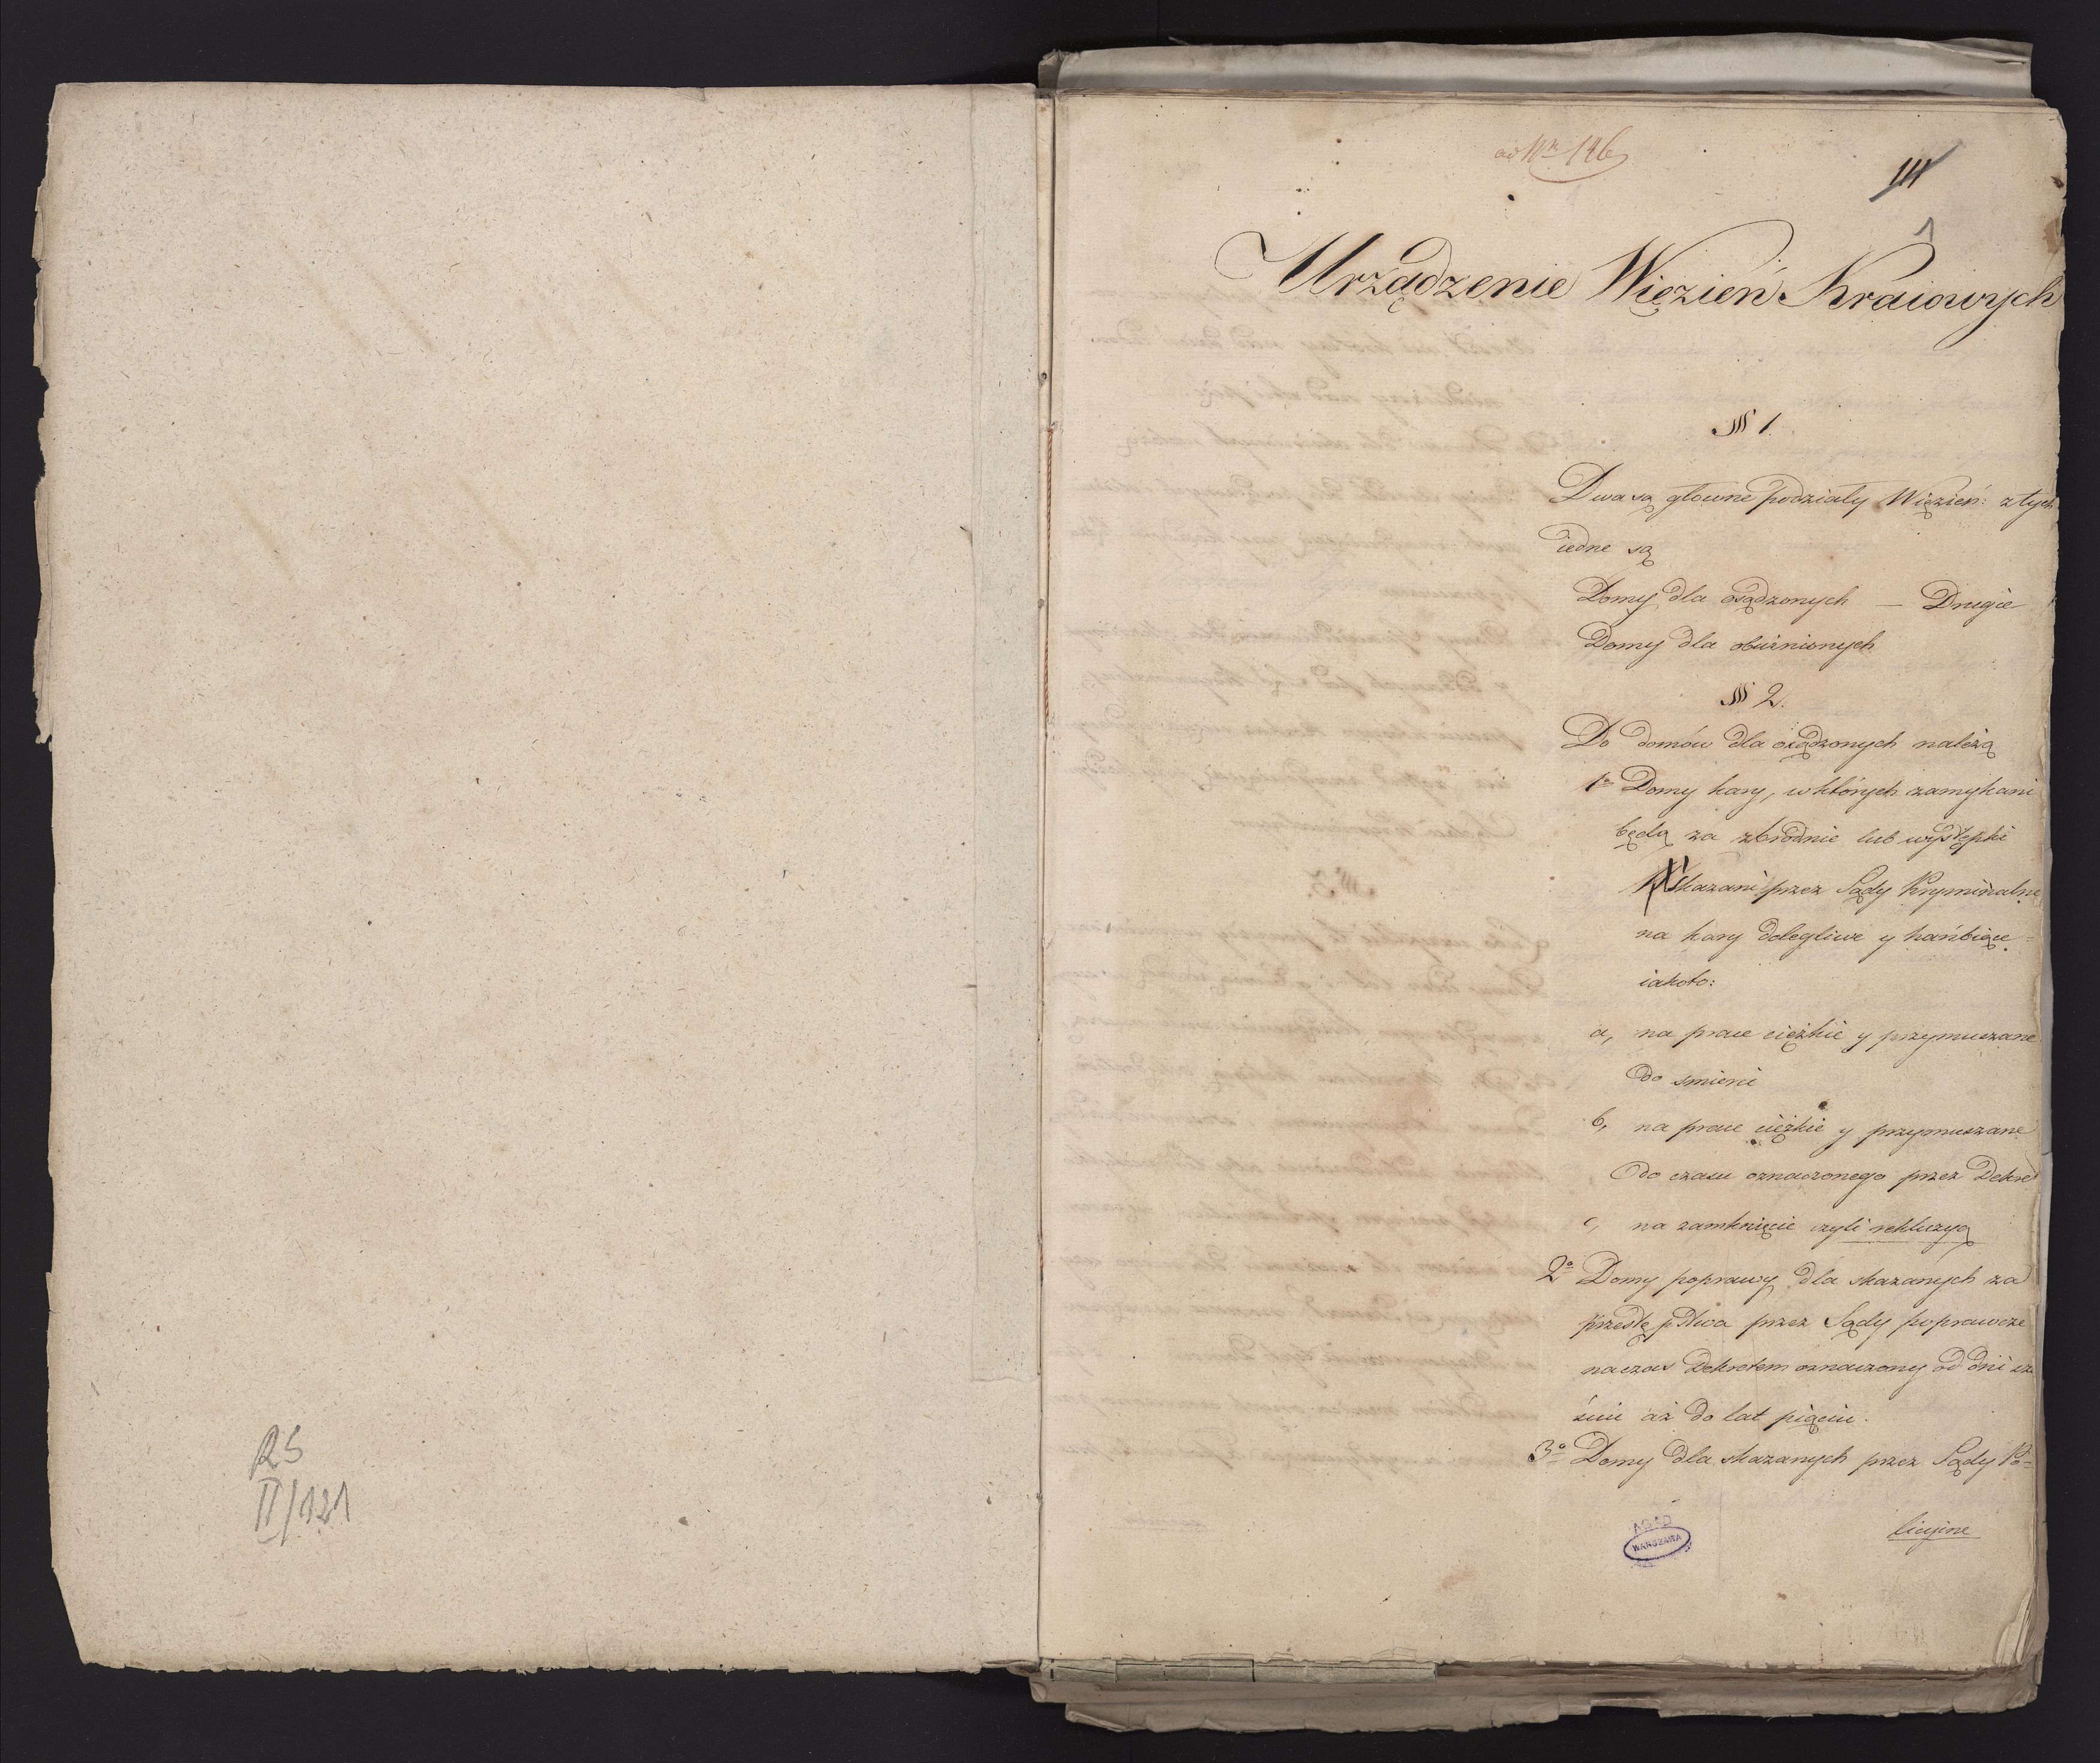 RS
II/121
ad Nr 146
111
1
Urządzenie Więzień Kraiowych
§ 1.
Dwa są głowne podziały Więzień: z tych
iedne są
Domy dla osądzonych — Drugie
Domy dla obwinionych
§ 2.
Do domów dla osądzonych należą
1o Domy kary, w których zamykani
będą za zbrodnie lub występki
skazani przez Sądy Kryminalne
na kary dolegliwe y hańbiące
iakoto:
a, na prace cięzkie y przymuszane
do smierci
b, na prace cięzkie y przymuszane
do czasu oznaczonego przez Dekret
c, na zamknięcie czyli rekluzyą
2o Domy poprawy dla skazanych za
przestępstwa przez Sądy poprawcze
na czas Dekretem oznaczony od dni sze
ściu aż do lat pięciu.
3o Domy dla skazanych przez Sądy Po-
licyine
AGAD
WARSZAWA